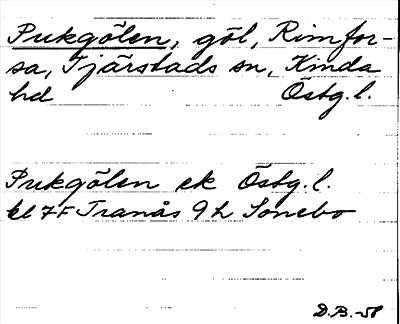 Pukgölen, göl, Rimfor-
sa, Tjärstads sn, Kinda
hd Östg.l.
Pukgölen ek Östg.l.
bl 7F Tranås 9h Sonebo
D.B.-58